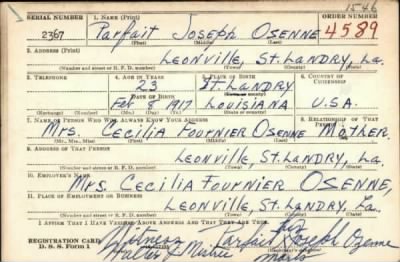 1546
SERIAL NUMBER 1. NAME (Print) ORDER NUMBER
2367 Parfait Joseph Osenne 4589
(First) (Middle) (Last)
2. ADDRESS (Print)
Leonville, St. Landry, La.
(Number and street or R. F. D. number) (Town) (County) (State)
3. TELEPHONE 4. AGE IN YEARS 5. PLACE OF BIRTH 6. COUNTRY OF CITIZENSHIP
23 St. Landry
DATE OF BIRTH (Town or county)
Feb 8 1917 Louisiana U.S.A.
(Exchange) (Number) (Mo.) (Day) (Yr.) (State or country)
7. NAME OF PERSON WHO WILL ALWAYS KNOW YOUR ADDRESS 8. RELATIONSHIP OF THAT PERSON
Mrs. Cecilia Fournier Osenne Mother.
(Mr., Mrs., Miss) (First) (Middle) (Last)
9. ADDRESS OF THAT PERSON
Leonville, St. Landry, La.
(Number and street or R. F. D. number) (Town) (County) (State)
10. EMPLOYER'S NAME
Mrs. Cecilia Fournier Osenne,
11. PLACE OF EMPLOYMENT OR BUSINESS
Leonville, St. Landry, La.
(Number and street or R. F. D. number) (Town) (County) (State)
I AFFIRM THAT I HAVE VERIFIED ABOVE ANSWERS AND THAT THEY ARE TRUE.
Witness his
REGISTRATION CARD Parfait Joseph Ozenne
D. S. S. Form 1 Walter J. mark